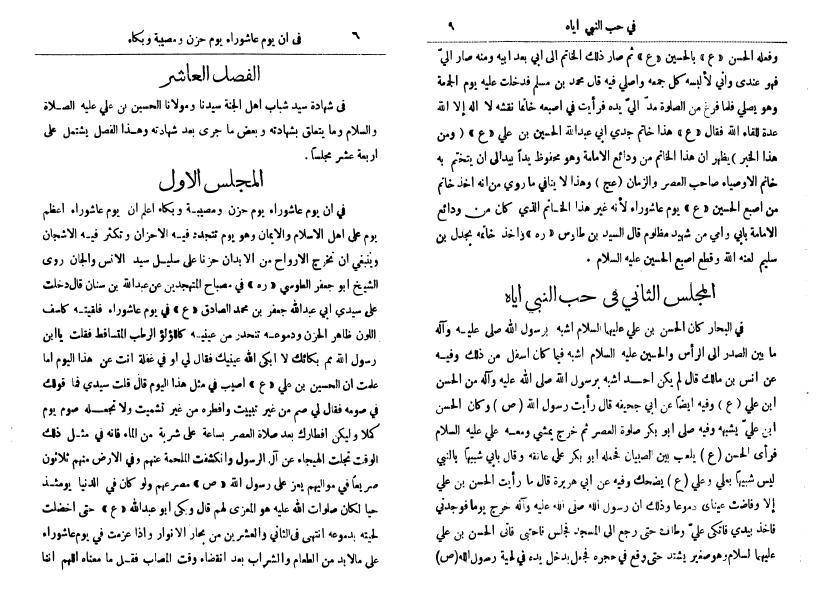 فى ان يوم عاشوراء يوم حزن ومصيبة وبكاء ٦
الفصل العاشر
فى شهادة سيد شباب اهل الجنة سيدنا ومولانا الحسين بن علي عليه الصلاة
والسلام وما يتعلق بشهادته وبعض ما جرى بعد شهادته وهذا الفصل يشتمل على
اربعة عشر مجلسا .
المجلس الاول
في ان يوم عاشوراء يوم حزن ومصيبة وبكاء اعلم ان يوم عاشوراء اعظم
يوم على اهل الاسلام والايمان وهو يوم تتجدد فيه الاحزان وتكثر فيه الاشجان
وينبغي ان تخرج الارواح من الابدان حزنا على سليل سيد الانس والجان روى
الشيخ ابو جعفر الطوسي « ره » في مصباح المتهجدين عن عبدالله بن سنان قال دخلت
على سيدي ابي عبدالله جعفر بن محمد الصادق « ع » في يوم عاشوراء فلقيته كاسف
اللون ظاهر الحزن ودموعه تنحدر من عينيه كاللؤلؤ الرطب المتساقط فقلت يابن
رسول الله مم بكائك لا ابكى الله عينيك فقال لي او في غفلة انت عن هذا اليوم اما
علمت ان الحسين بن علي « ع » اصيب في مثل هذا اليوم قال قلت سيدي فما قولك
في صومه فقال لي صم من غير تبييت وافطره من غير تشميت ولا تجعله صوم يوم
كملا وليكن افطارك بعد صلاة العصر بساعة على شربة من الماء فانه في مثل ذلك
الوقت تجلت الهيجاء عن آل الرسول وانكشفت الملحمة عنهم وفي الارض منهم ثلاثون
صريعا في مواليهم يعز على رسول الله « ص » مصرعهم ولو كان في الدنيا يومئذ
حيا لكان صلوات الله عليه هو المعزى لهم قال وبكى ابو عبدالله « ع » حتى اخضلت
لحيته بدموعه انتهى فى الثاني والعشرين من بحار الانوار واذا عزمت في يوم عاشوراء
على مالابد من الطعام والشراب بعد انقضاء وقت المصاب فقل ما معناه اللهم اننا
في حب النبي اياه ٩
وفعله الحسن « ع » بالحسين « ع » ثم صار ذلك الخاتم الى ابي بعد ابيه ومنه صار اليّ
فهو عندى واني لألبسه كل جمعه واصلي فيه قال محمد بن مسلم فدخلت عليه يوم الجمعة
وهو يصلي فلما فرغ من الصلوة مدّ اليّ يده فرأيت في اصبعه خاتما نقشه لا اله إلا الله
عدة للقاء الله فقال « ع » هذا خاتم جدي ابي عبدالله الحسين بن علي « ع » ( ومن
هذا الخبر ) يظهر ان هذا الخاتم من ودائع الامامة وهو محفوظ يداً بيد الى ان يتختم به
خاتم الاوصياء صاحب العصر والزمان (عج) وهذا لا ينافي ما روي من انه اخذ خاتم
من اصبع الحسين « ع » يوم عاشوراء لأنه غير هذا الخاتم الذي كان من ودائع
الامامة بابي وامي من شهيد مظلوم قال السيد بن طاوس « ره » واخذ خاتمه بجدل بن
سليم لعنه الله وقطع اصبع الحسين عليه السلام .
المجلس الثاني فى حب النبي اياه
في البحار كان الحسن بن علي عليهما السلام اشبه برسول الله صلى عليه وآله
ما بين الصدر الى الرأس والحسين عليه السلام اشبه فيما كان اسفل من ذلك وفيه
عن انس بن مالك قال لم يكن احد اشبه برسول الله صلى الله عليه وآله من الحسن
ابن علي ( ع ) وفيه ايضا عن ابي جحيفه قال رأيت رسول الله ( ص ) وكان الحسن
ابن عليّ يشبهه وفيه صلى ابو بكر صلوة العصر ثم خرج يمشي ومعه علي عليه السلام
فرأى الحسن ( ع ) يلعب بين الصبيان فحمله ابو بكر على عاتقه وقال بابي شبيها بالنبي
ليس شبيها بعلي وعلي ( ع ) يضحك وفيه عن ابي هريرة قال ما رأيت الحسن بن علي
إلا وفاضت عيناى دموعا وذلك ان رسول الله صلى الله عليه وآله خرج يوما فوجدني
فاخذ بيدي فاتكى عليّ وطاف حتى رجع الى المسجد فجلس فاحتبى فاتى الحسن بن علي
عليهما السلام وهو صغير يشتد حتى وقع في حجره فجعل يدخل يده في لحية رسول الله (ص)